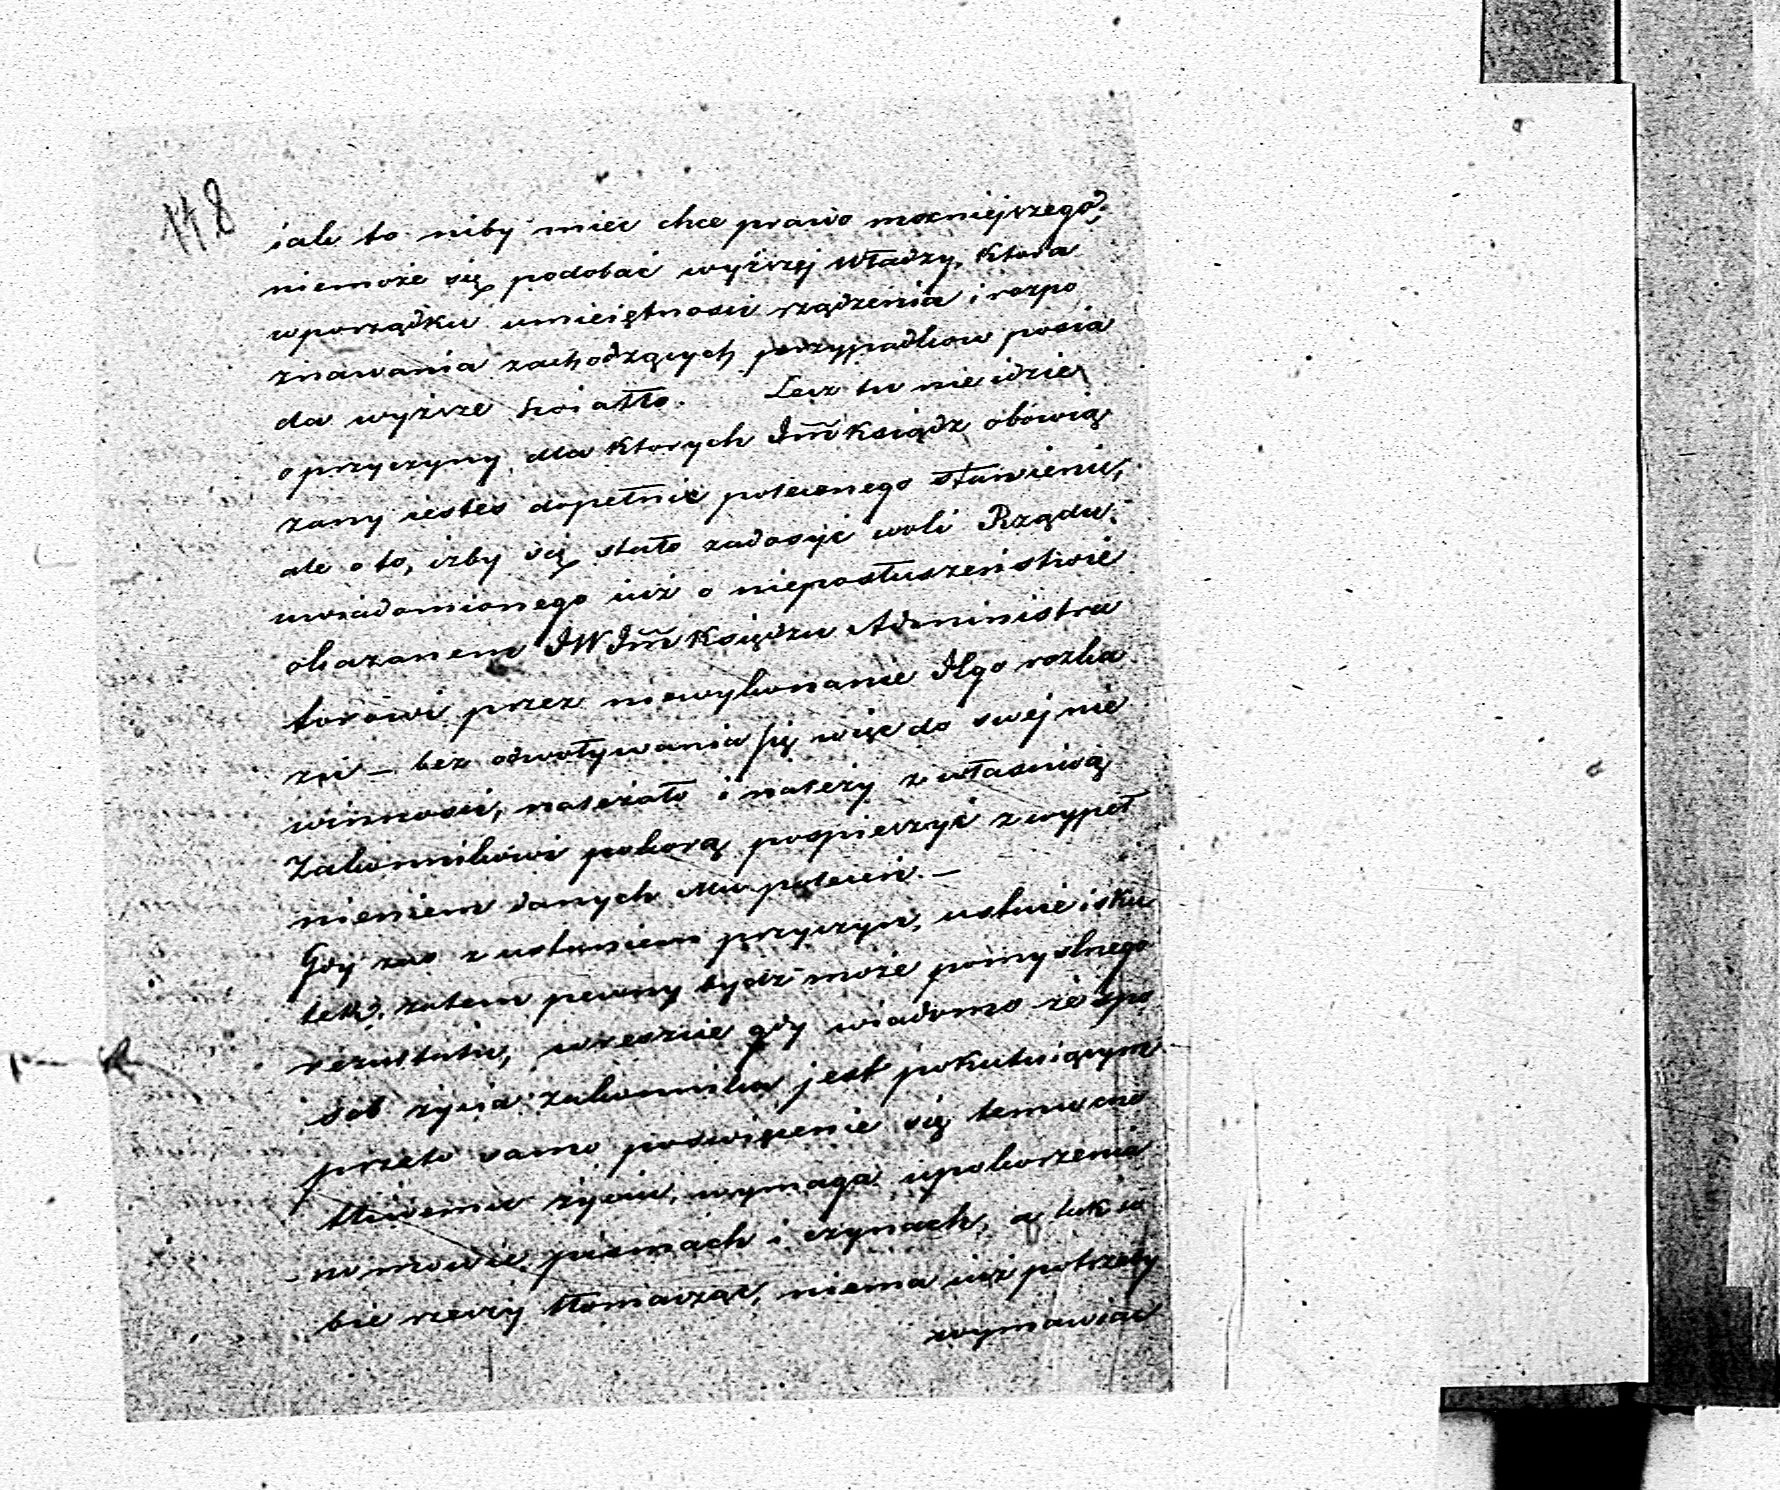 148
iak to niby mieć chce prawo mocniejszego;
niemoże się podobać wyższej Władzy, ktora
wporządku umieiętnosci rządzenia i rozpo
znawania zachodzących przypadkow posia
da wyższe swiatło. Lecz tu nie idzie
oprzyczyny dla ktorych Jm̃ Ksiądz obowią
zany iestes dopełnić poleconego stawienia,
ale o to, iżby się stało zadosyć woli Rządu
uwiadomionego iuż o nieposłuszeństwie
okazanem JW. Jm̃ Księdzu Administra
torowi przez niewykonanie Jego rozka
zu — bez odwoływania się więc do swej nie
winnosci, należało i należy z własciwą
Zakonnikowi pokorą pospieszyć z wypeł
nieniem danych Mu poleceń. —
Gdy zas z ustaniem przyczyn, ustaie i sku
tek, zatem pewny bydź może pomyslnego
rezultatu, wreszcie gdy wiadomo że spo
sob życia zakonnika jest pokutuiącym
przeto samo poswięcenie się temu cno
tliwemu życiu, wymaga upokorzenia
w mowie, pismach i czynach, a tak w
bie rzeczy tłomacząc, niema iuż potrzeby
wymawiać